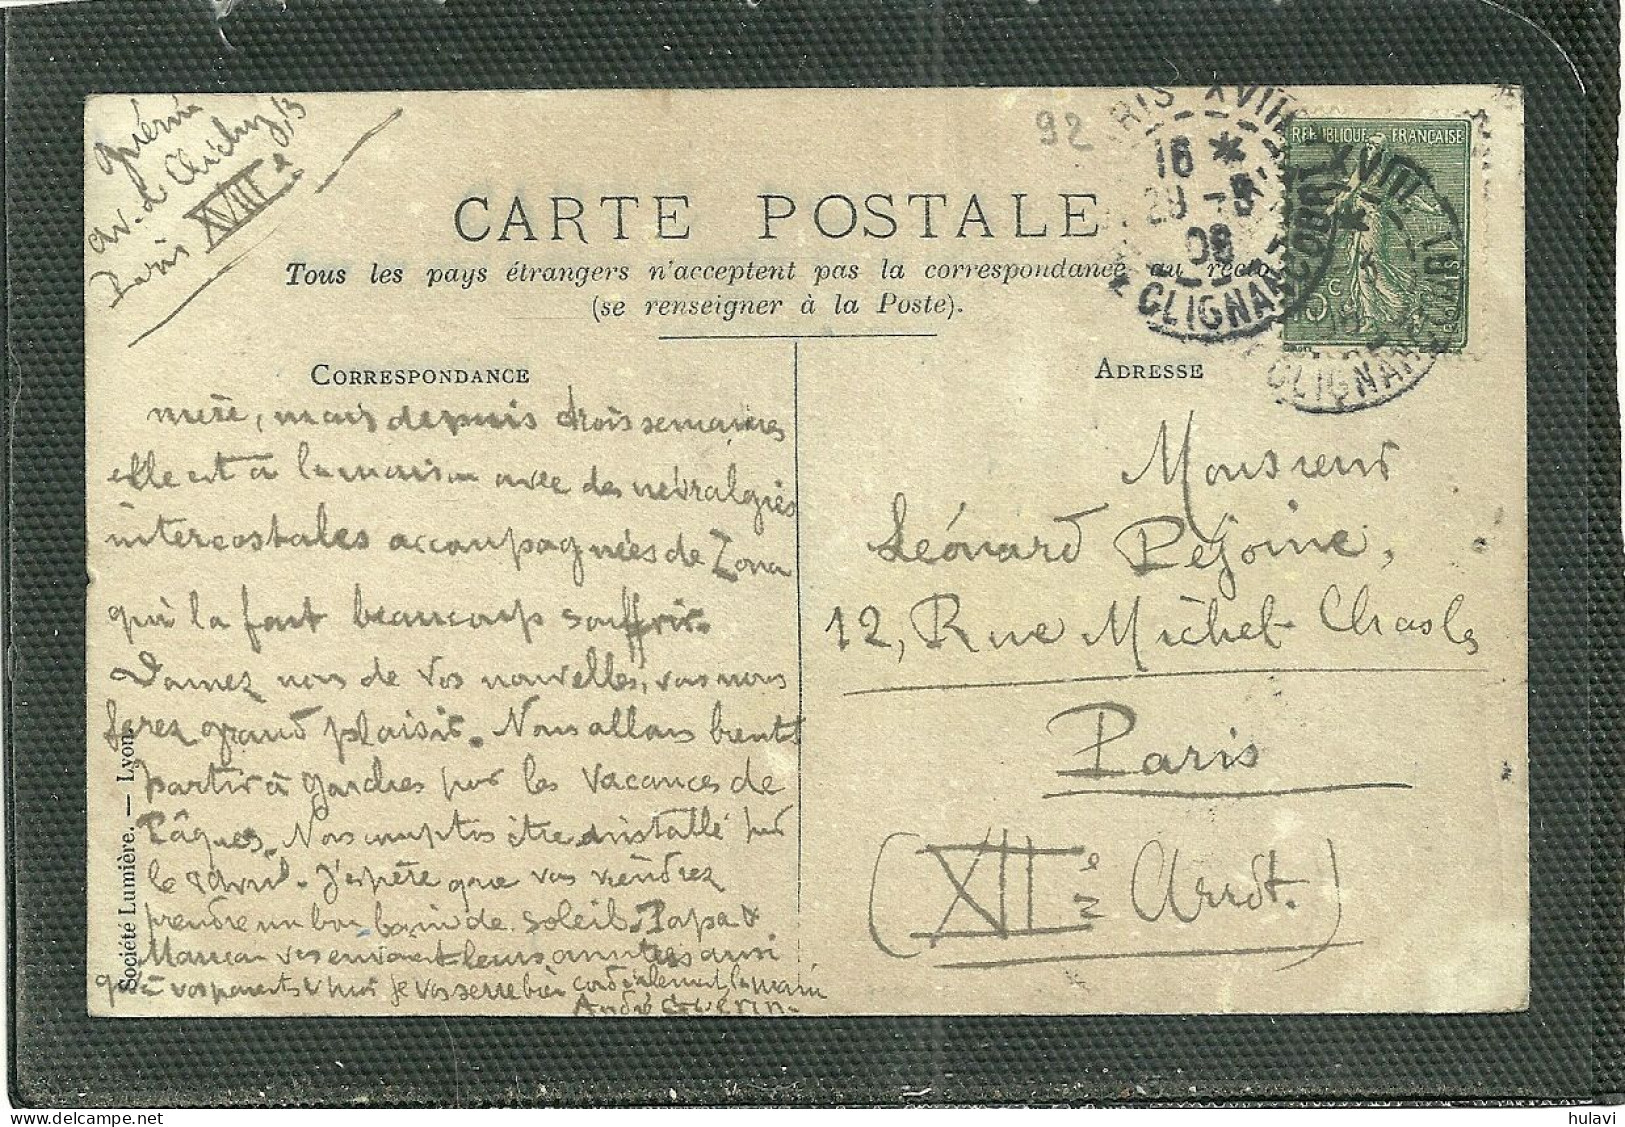 Guérin
av. de Clichy 13
Paris XVIIIe
92
CARTE POSTALE
Tous les pays étrangers n'acceptent pas la correspondance au recto
(se renseigner à la Poste).
CORRESPONDANCE
mère, mais depuis trois semaines
elle est à la maison avec des névralgies
intercostales accompagnées de Zona
qui la fait beaucoup souffrir.
Donnez nous de vos nouvelles, vous nous
ferez grand plaisir. Nous allons bientôt
partir à Gardres pour les vacances de
Pâques. Nous comptons être installé pour
le avril. J'espère que vous viendrez
prendre un bon bain de soleil. Papa &
Maman vous envoient leurs amitiés ainsi
qu'à vos parents & moi je vous serre bien cordialement la main
André Guérin.
Société Lumière. — Lyon.
ADRESSE
Monsieur
Léonard Pejoine,
12, Rue Michel Chasles
Paris
(XIIme Arrdt.)
REPUBLIQUE FRANÇAISE
PARIS XVIII
16 *
29 -3
08
CLIGNANCOURT
XVIII
CLIGNAN
hulavi
delcampe.net